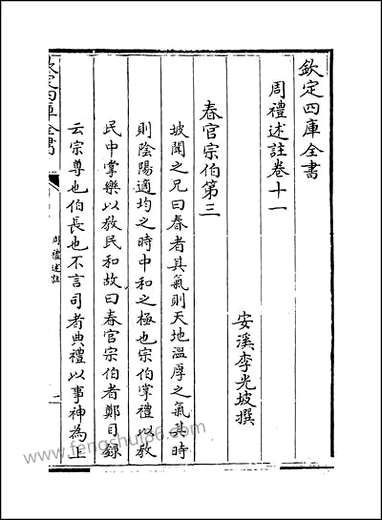 欽定四庫全書
周禮述註卷十一
安溪李光坡撰
春官宗伯第三
坡聞之兄曰春者其氣則天地溫厚之氣其時
則陰陽適均之時中和之極也宗伯掌禮以教
民中掌樂以教民和故曰春官宗伯者鄭目録
云宗尊也伯長也不言司者典禮以事神為上
欽定四庫全書
周禮述註
一
www.fengshui86.com